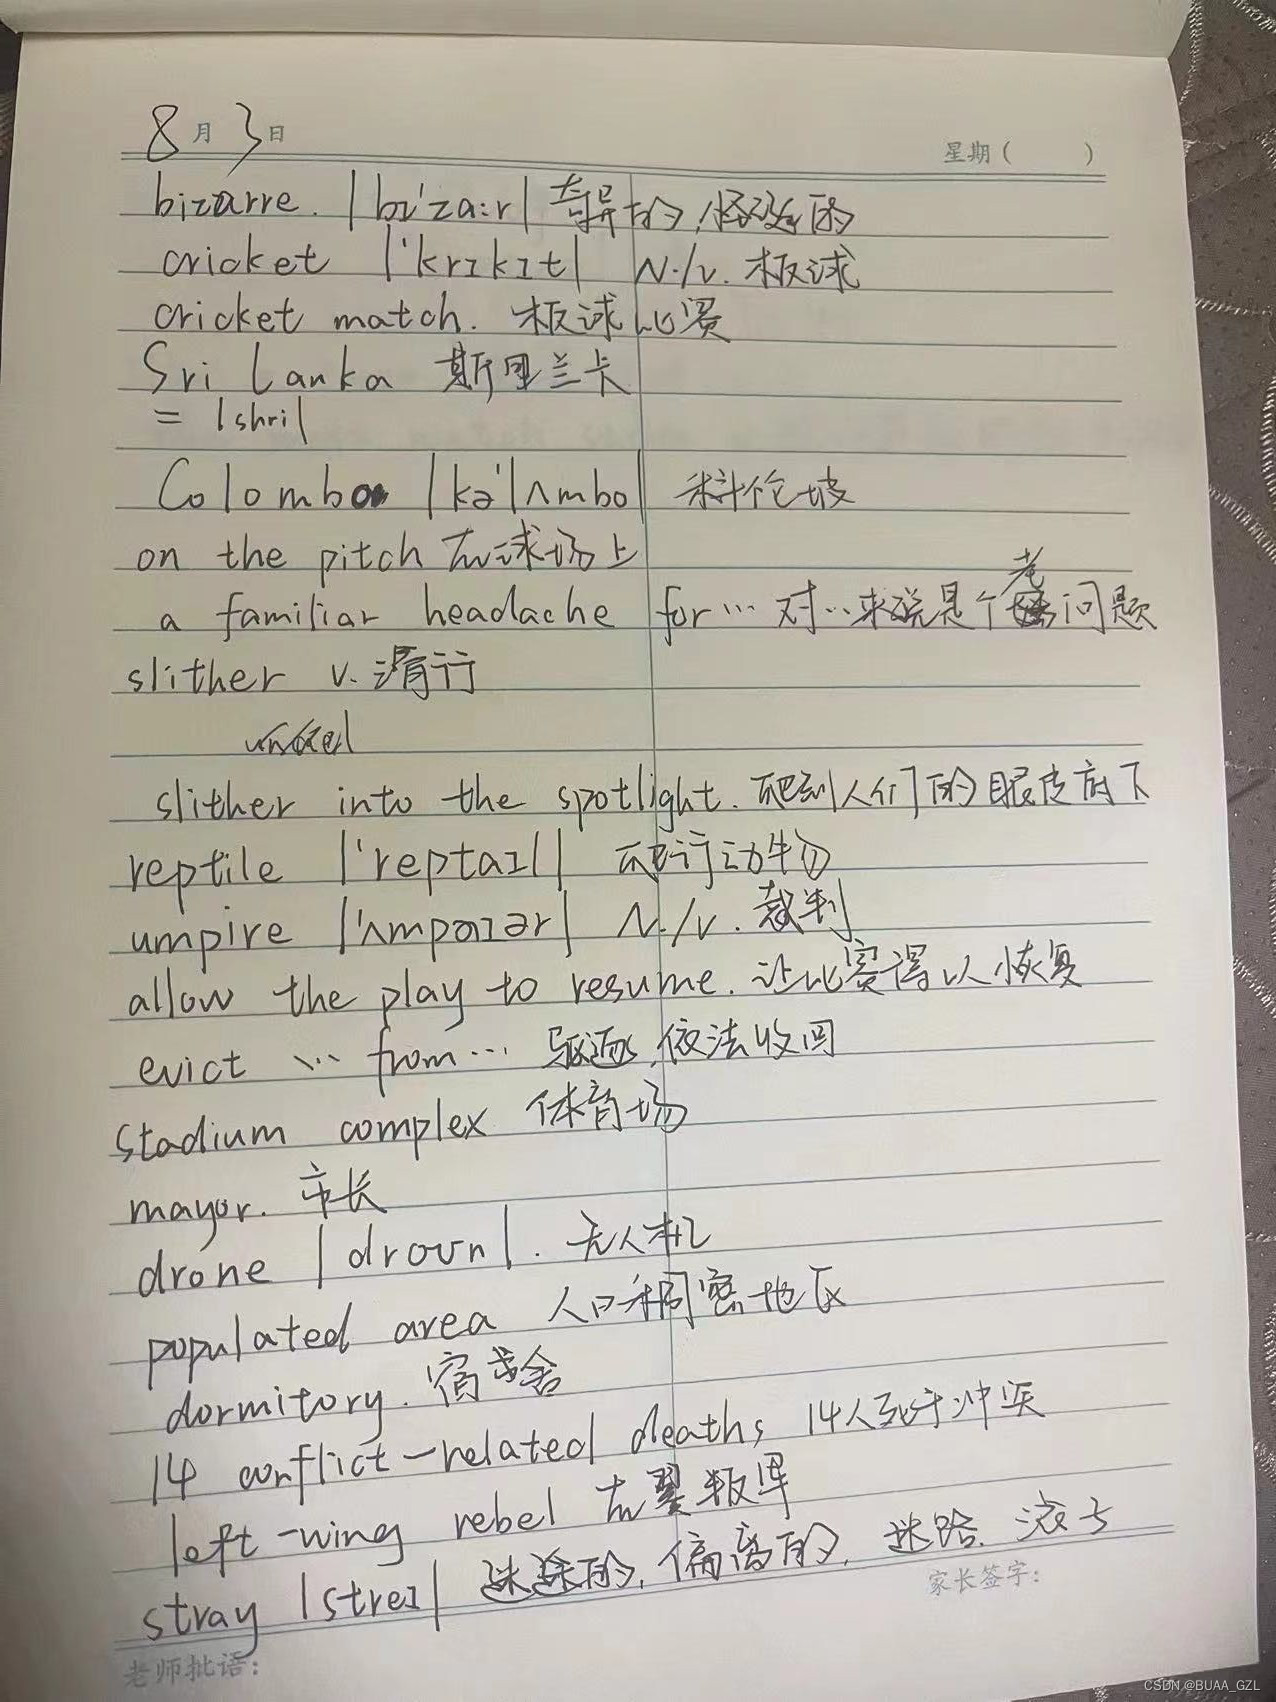 8月3日 星期( )
bizarre. |bɪ'za:r| 奇异的,怪诞的
cricket |'krɪkɪt| N./v. 板球
cricket match. 板球比赛
Sri Lanka 斯里兰卡
= |shri|
Colombo |kə'lʌmbo| 科伦坡
on the pitch 在球场上
a familiar headache for… 对…来说是个老问题
slither v. 滑行
slither into the spotlight. 爬到人们的眼皮底下
reptile |'reptaɪl| 爬行动物
umpire |'ʌmpaɪər| N./v. 裁判
allow the play to resume. 让比赛得以恢复
evict … from… 驱逐,依法收回
stadium complex 体育场
mayor. 市长
drone |droʊn|. 无人机
populated area 人口稠密地区
dormitory. 宿舍
14 conflict-related deaths 14人死于冲突
left-wing rebel 左翼叛军
stray |streɪ| 迷途的,偏离的,迷路.
家长签字:
老师批语:
CSDN @BUAA_GZL